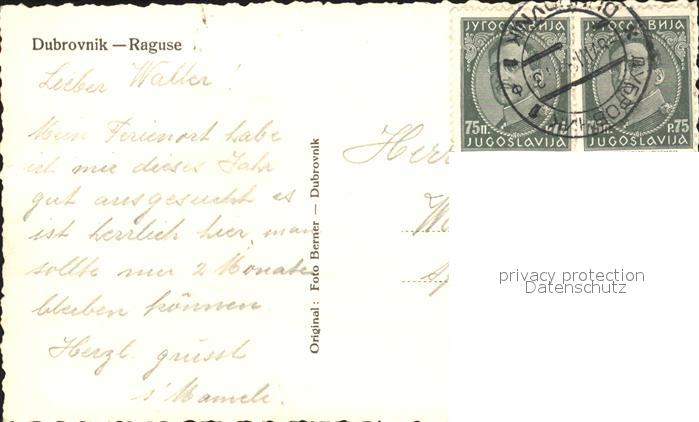 Dubrovnik — Raguse
Lieber Walter!
Mein Ferienort habe
ich mir dieses Jahr
gut ausgesucht es
ist herrlich hier man
sollte nur 2 Monate
bleiben können.
Herzl. grüsst
s'Mameli.
Original: Foto Berner — Dubrovnik
Herr
ЈУГОСЛАВИЈА
75п.
JUGOSLAVIJA
ЈУГОСЛАВИЈА
P.75
JUGOSLAVIJA
DUBROVNIK
ДУБРОВНИК 1
privacy protection
Datenschutz